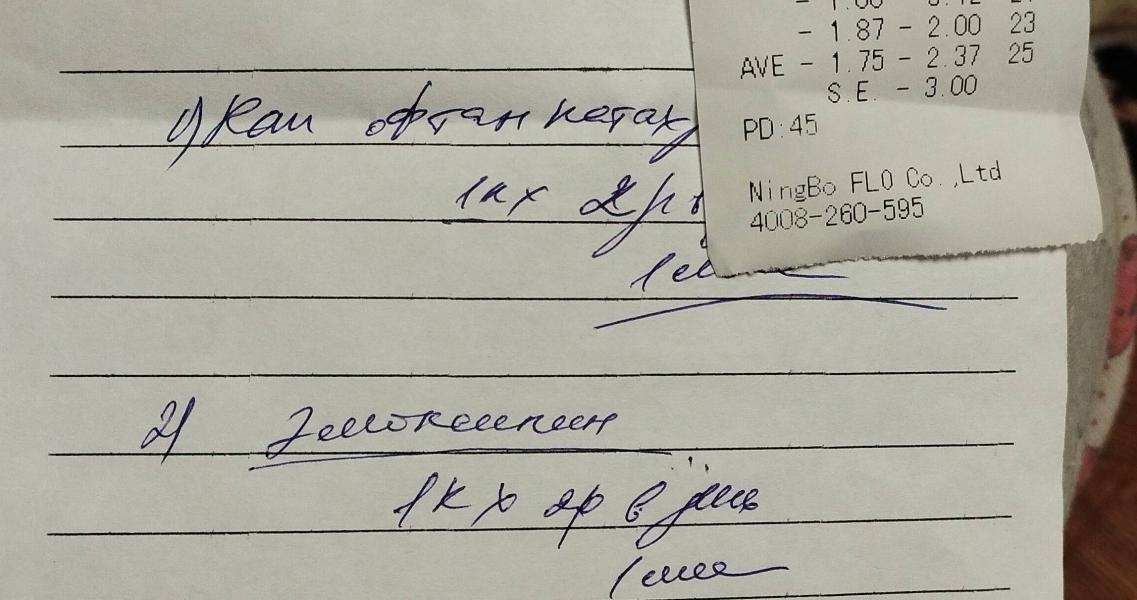 - 1.87 - 2.00 23
AVE - 1.75 - 2.37 25
S.E. - 3.00
PD:45
NingBo FLO Co.,Ltd
4008-260-595
1) Кап офтан катах
1к х 2 р
2) Эмоксипин
1к х 2р в день
1 мес